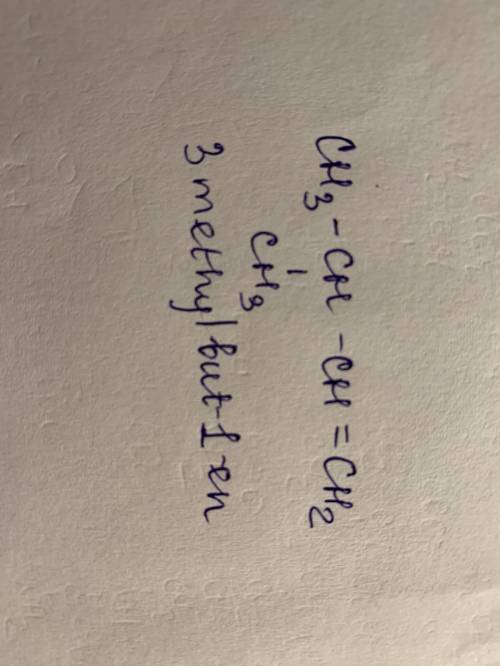 CH₃-CH-CH=CH₂
|
CH₃
3 methyl but-1-en